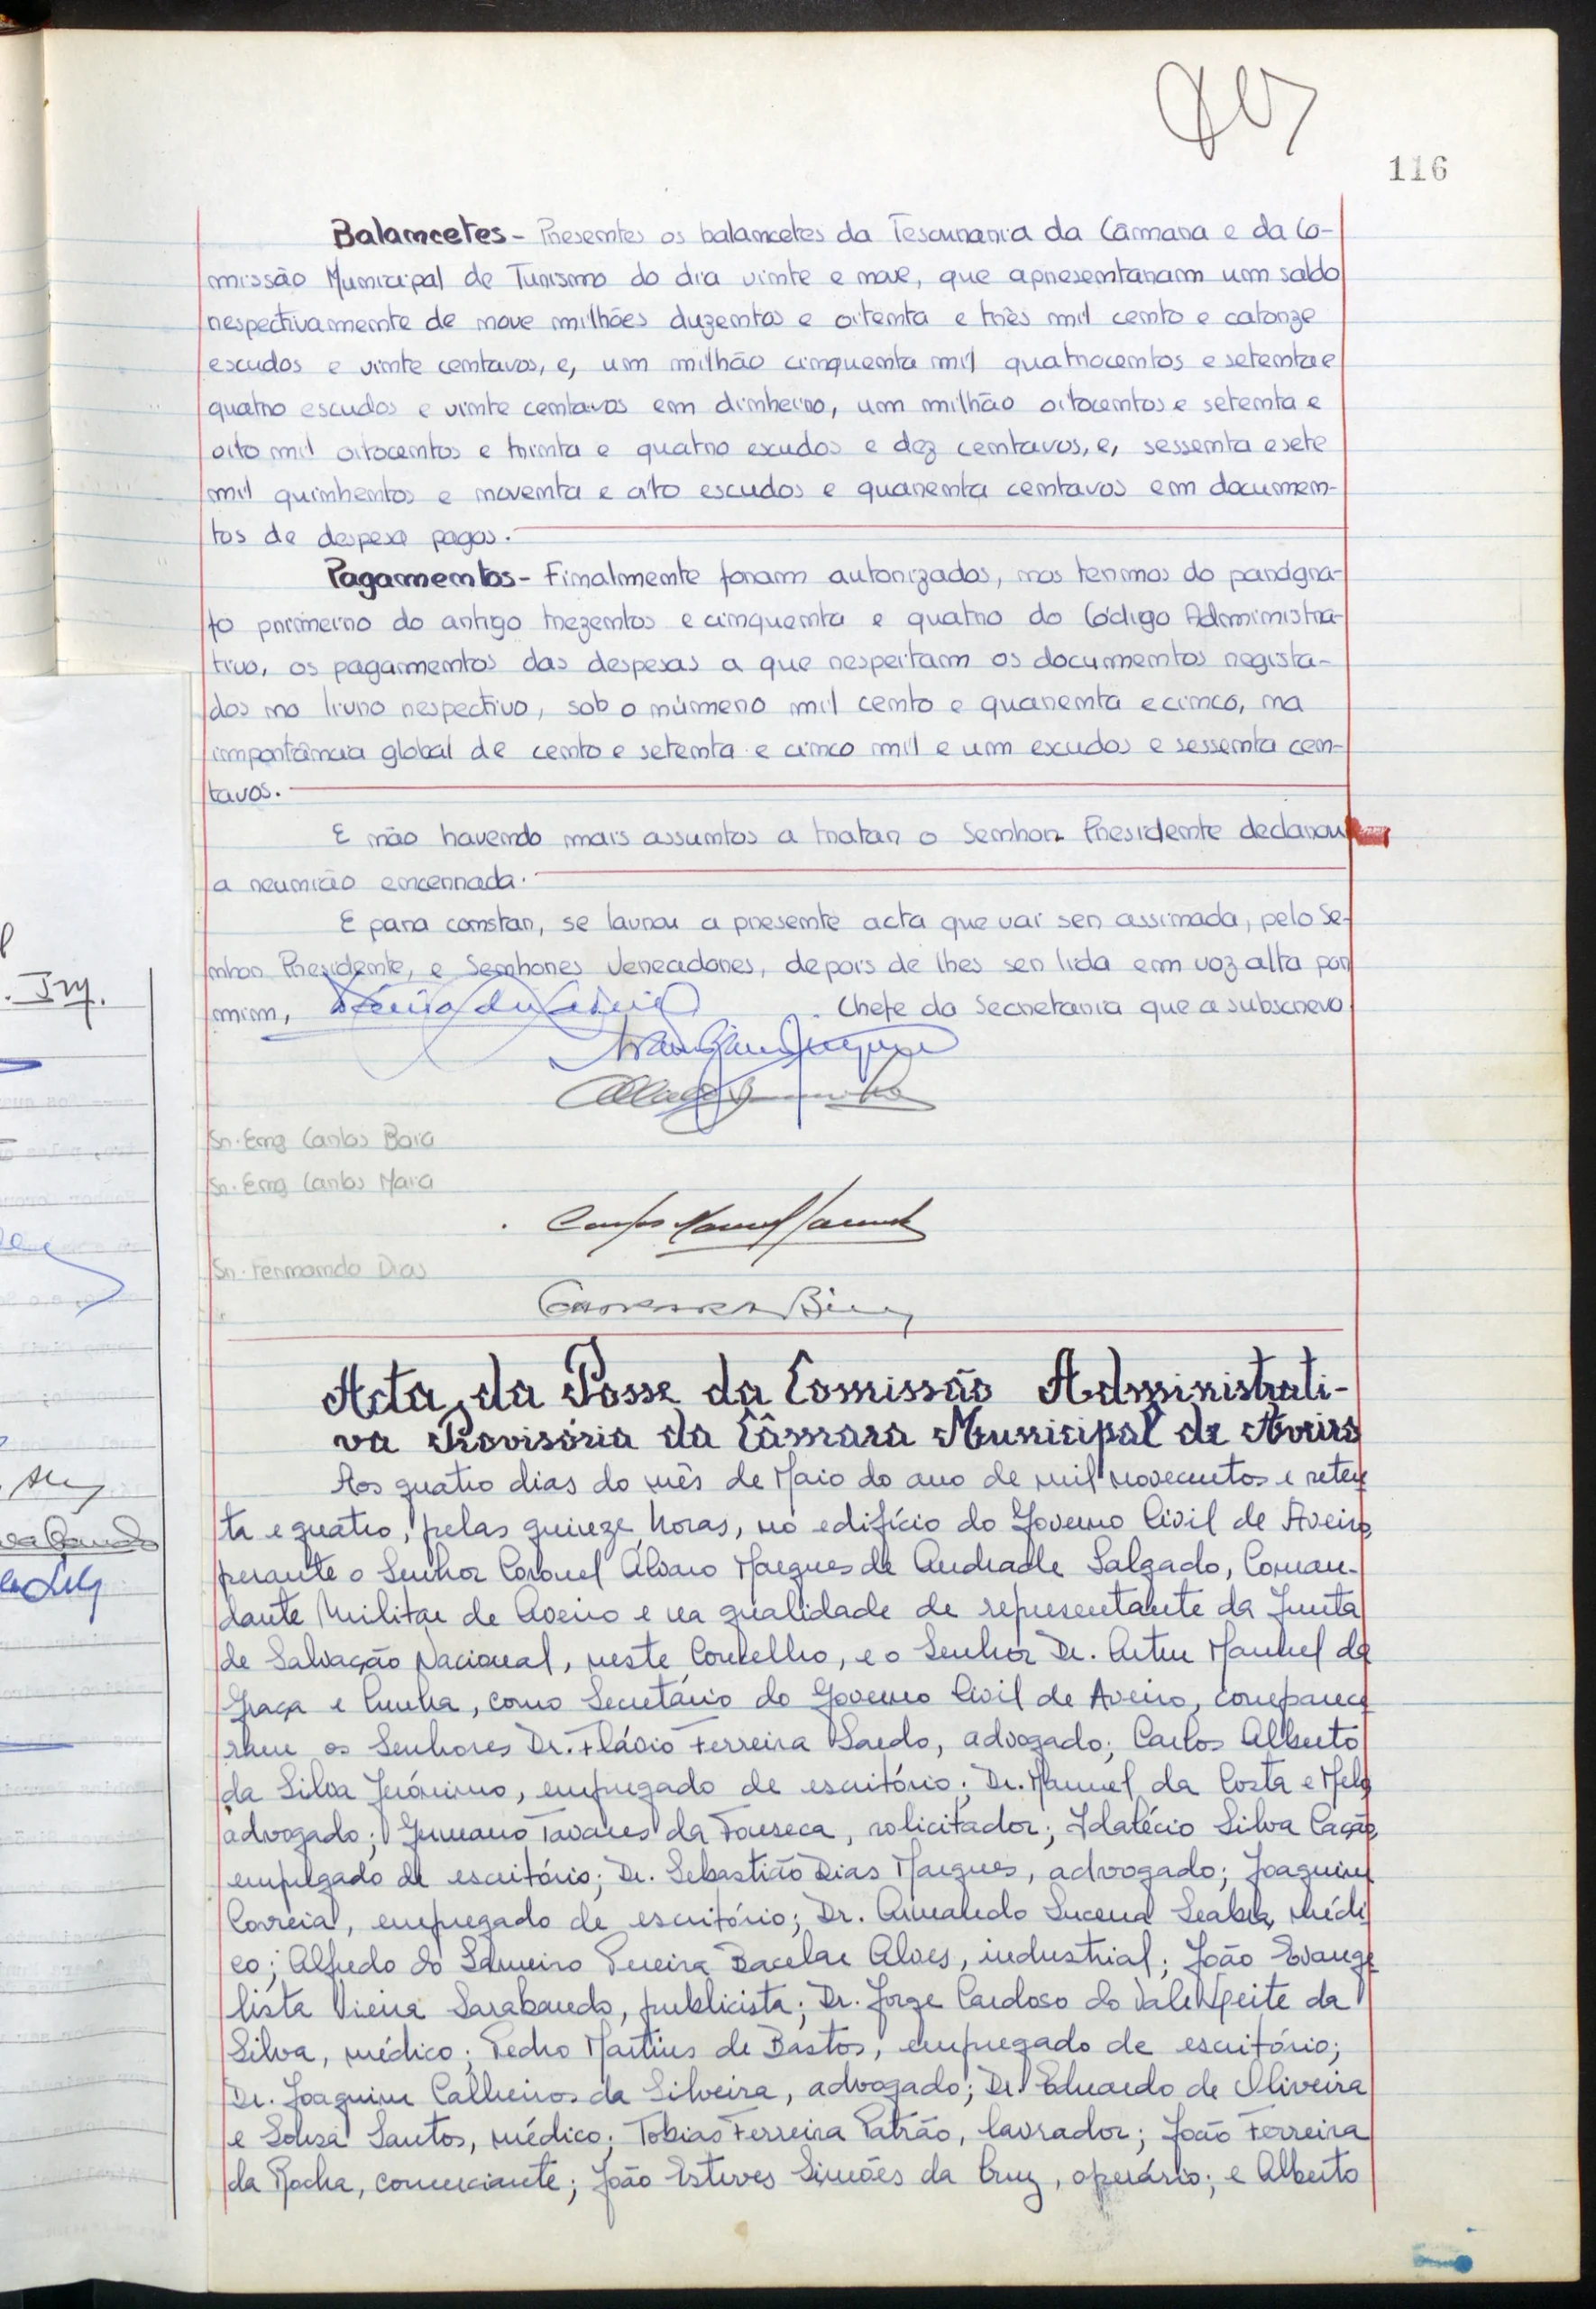 116
Balancetes - Presentes os balancetes da Tesouraria da Câmara e da Co-
missão Municipal de Turismo do dia vinte e nove, que apresentaram um saldo
respectivamente de nove milhões duzentos e oitenta e três mil cento e catorze
escudos e vinte centavos, e, um milhão cinquenta mil quatrocentos e setenta e
quatro escudos e vinte centavos em dinheiro, um milhão oitocentos e setenta e
oito mil oitocentos e trinta e quatro escudos e dez centavos, e, sessenta e sete
mil quinhentos e noventa e oito escudos e quarenta centavos em documen-
tos de despesa pagos.
Pagamentos - Finalmente foram autorizados, nos termos do parágra-
fo primeiro do artigo trezentos e cinquenta e quatro do Código Administra-
tivo, os pagamentos das despesas a que respeitam os documentos regista-
dos no livro respectivo, sob o número mil cento e quarenta e cinco, na
importância global de cento e setenta e cinco mil e um escudos e sessenta cen-
tavos.
E não havendo mais assuntos a tratar o Senhor Presidente declarou
a reunião encerrada.
E para constar, se lavrou a presente acta que vai ser assinada, pelo Se-
nhor Presidente, e Senhores Vereadores, depois de lhes ser lida em voz alta por
mim, Chefe da Secretaria que a subscrevo
Sr. Eng Carlos Boia
Sr. Eng Carlos Maia
Carlos Manuel
Sr. Fernando Dias
Acta da Posse da Comissão Administrati-
va Provisória da Câmara Municipal de Aveiro
Aos quatro dias do mês de Maio do ano de mil novecentos e seten
ta e quatro, pelas quinze horas, no edifício do Governo Civil de Aveiro,
perante o Senhor Coronel Álvaro Marques de Andrade Salgado, Coman-
dante Militar de Aveiro e na qualidade de representante da Junta
de Salvação Nacional, neste Concelho, e o Senhor Dr. Artur Manuel da
Graça e Cunha, como Secretário do Governo Civil de Aveiro, comparece
ram os Senhores Dr. Flávio Ferreira Sardo, advogado; Carlos Alberto
da Silva Jerónimo, empregado de escritório; Dr. Manuel da Costa e Melo,
advogado; Germano Tavares da Fonseca, solicitador; Idalécio Silva Cação,
empregado de escritório; Dr. Sebastião Dias Marques, advogado; Joaquim
Correia, empregado de escritório; Dr. Armando Lucena Seabra, médi
co; Alfredo do Sameiro Pereira Bacelar Alves, industrial; João Evange
lista Vieira Sarabando, publicista; Dr. Jorge Cardoso do Vale Leite da
Silva, médico; Pedro Martins de Bastos, empregado de escritório;
Dr. Joaquim Calheiros da Silveira, advogado; Dr. Eduardo de Oliveira
e Sousa Santos, médico; Tobias Ferreira Patrão, lavrador; João Ferreira
da Rocha, comerciante; João Esteves Simões da Cruz, operário; e Alberto